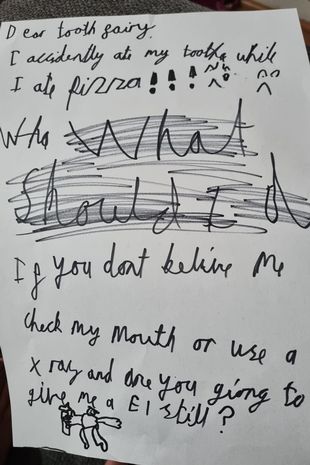 Dear tooth fairy,
I accidently ate my tooth while
I ate pizza!!!
Who What
Should I d
If you dont belive Me
Check my Mouth or use a
X ray and are you giong to
give me a £1 still?